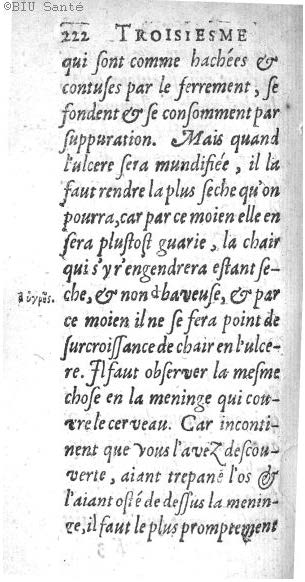 ©BIU Santé
222 TROISIESME
qui ſont comme hachées &
contuſes par le ferrement, ſe
fondent & ſe conſomment par
ſuppuration. Mais quand
l'ulcere ſera mundifiée, il la
faut rendre la plus ſeche qu'on
pourra, car par ce moien elle en
ſera pluſtoſt guarie, la chair
qui s'y r'engendrera eſtant ſe-
che, & non baveuſe, & par
ce moien il ne ſe fera point de
ſurcroiſſance de chair en l'ulce-
re. Il faut obſerver la meſme
choſe en la meninge qui cou-
vre le cerveau. Car inconti-
nent que vous l'avez deſcou-
verte, aiant trepané l'os &
l'aiant oſté de deſſus la menin-
ge, il faut le plus promptement